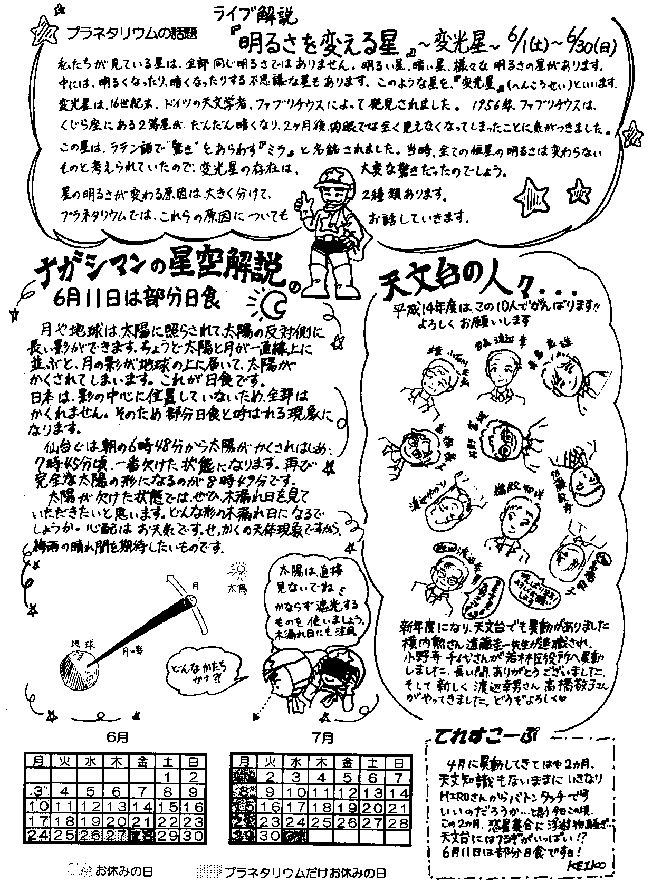 ライブ解説
プラネタリウムの話題
『明るさを変える星』~変光星~ 6/1(土)~6/30(日)
私たちが見ている星は、全部同じ明るさではありません。明るい星、暗い星、様々な明るさの星があります。
中には、明るくなったり、暗くなったりする不思議な星もあります。このような星を、『変光星』(へんこうせい)といいます。
変光星は、16世紀末、ドイツの天文学者、ファブリチウスによって発見されました。1956年、ファブリチウスは、
くじら座にある2等星が、だんだん暗くなり、2ヶ月後、肉眼では全く見えなくなってしまったことに気がつきました。
この星は、ラテン語で"驚き"をあらわす"ミラ"と名認されました。当時、全ての恒星の明るさは変わらない
ものと考えられていたので、変光星の存在は、大変な驚きだったのでしょう。
星の明るさが変わる原因は大きく分けて、2種類あります。
プラネタリウムでは、これらの原因についてもお話していきます。
ナガシマンの星空解説の
6月11日は部分日食
月や地球は太陽に照らされて、太陽の反対側に
長い影ができます。ちょうど太陽と月が一直線上に
並ぶと、月の影が地球の上に届いて、太陽が
かくされてしまいます。これが日食です。
日本は、影の中心に位置していないため、全部は
かくれません。そのため部分日食と呼ばれる現象に
なります。
仙台では朝の6時48分から太陽がかくされはじめ、
7時45分頃、一番欠けた状態になります。再び
完全な太陽の形になるのが8時49分です。
太陽が欠けた状態では、ぜひ、木漏れ日を見て
いただきたいと思います。どんな形の木漏れ日になるで
しょうか。心配はお天気です。せっかくの天体現象ですから、
梅雨の晴れ間を期待したいものです。
月
太陽
地球
月の影
どんなかたち
かな?!
太陽は、直接
見ないでね
かならず遮光する
ものを使いましょう。
木漏れ日にも注目
天文台の人々...
平成14年度は、この10人でがんばります!!
よろしくお願いします
新年度になり、天文台でも異動がありました
横内勲さん、遠藤圭一先生が退職され、
小野寺千もよさんが若林区役所へ異動
しました。長い間ありがとうございました。
そして新しく渡辺幸男さん高橋敦子さん
がやってきました。どうぞよろしく
6月
月 火 水 木 金 土 日
1 2
3 4 5 6 7 8 9
10 11 12 13 14 15 16
17 18 19 20 21 22 23
24 25 26 27 28 29 30
7月
月 火 水 木 金 土 日
1 2 3 4 5 6 7
8 9 10 11 12 13 14
15 16 17 18 19 20 21
22 23 24 25 26 27 28
29 30 31
お休みの日
プラネタリウムだけお休みの日
てれすこーぷ
4月に異動してきてはや2ヵ月、
天文知識もないままにいきなり
HIROさんからバトンタッチで
いいのだろうか…と思う今日この頃
この2ヵ月、惑星集合に浮遊物騒ぎ…
天文台にはナゾがいっぱい!?
6月11日は部分日食ですヨ!
KEIKO